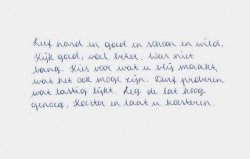 Lief hard en goed en schoon en wild.
Kijk goed, voel beter. Wees niet
bang. Kies voor wat u blij maakt,
wat het ook moge zijn. Durf proberen
wat lastig lijkt. Leg de lat hoog
genoeg. Koester en laat u koesteren.